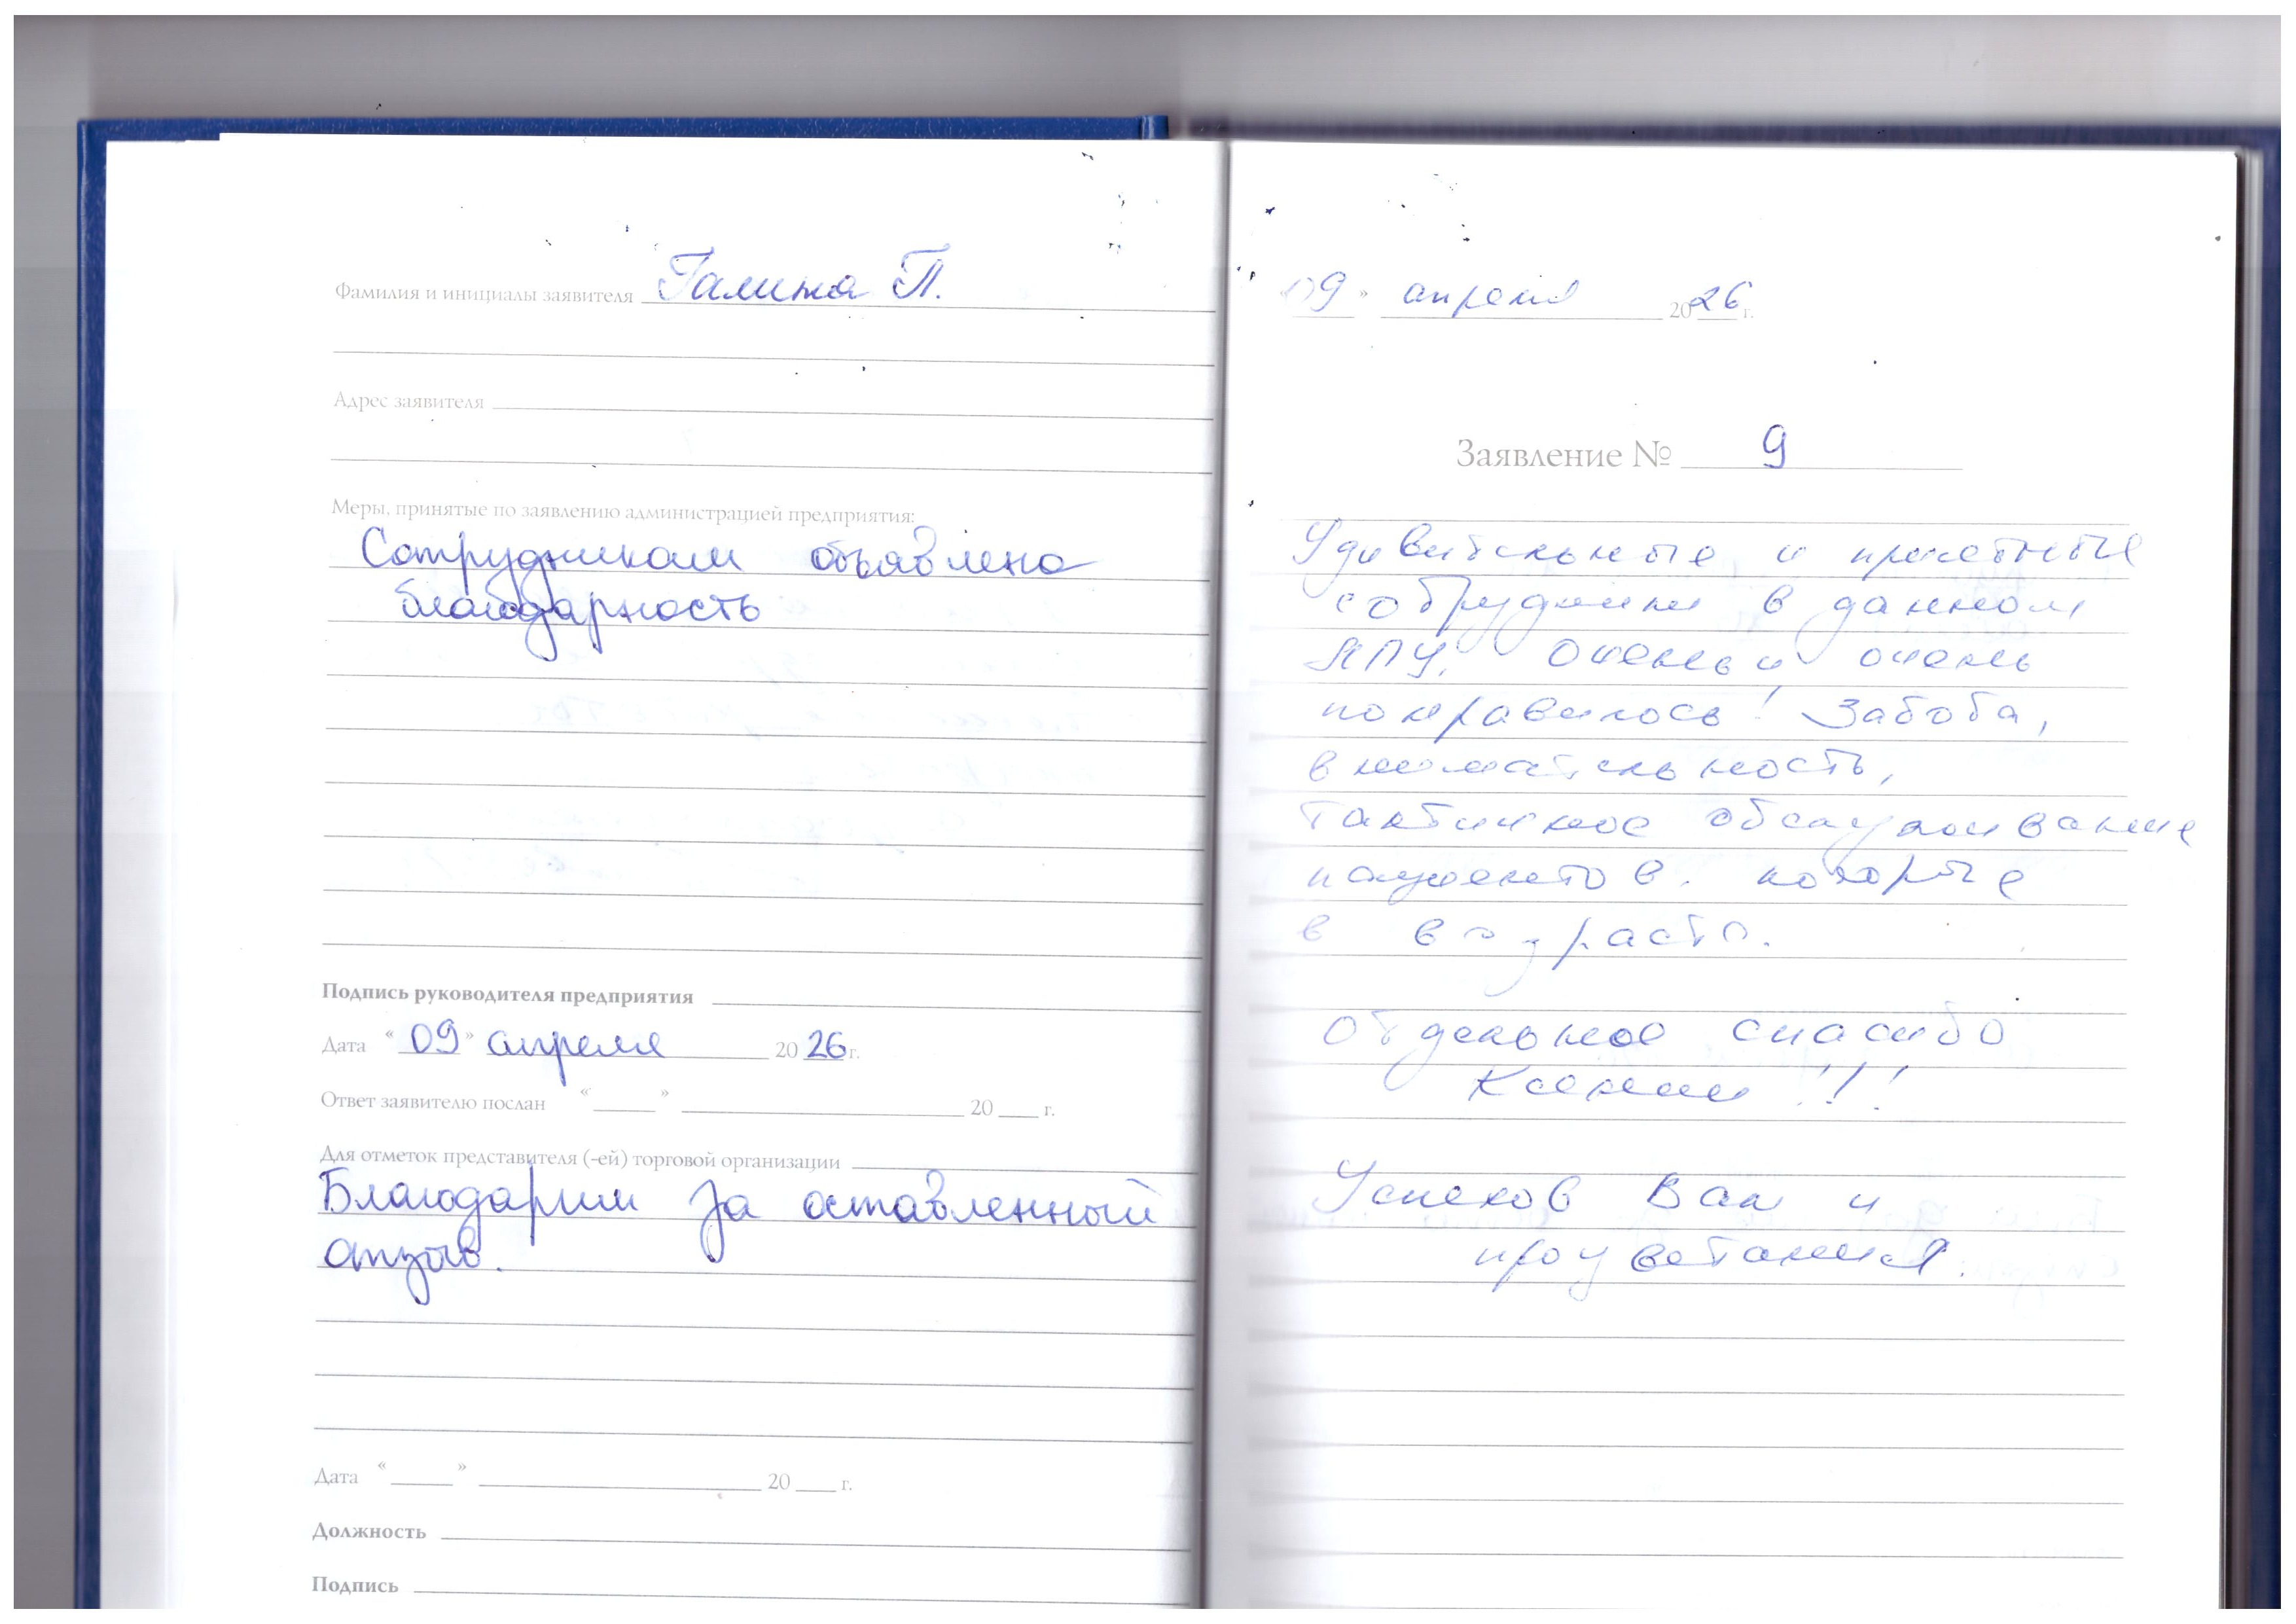 Фамилия и инициалы заявителя Галина П.
Адрес заявителя
Меры, принятые по заявлению администрацией предприятия:
Сотрудникам объявлена
благодарность
Подпись руководителя предприятия
Дата "09" апреля 2026 г.
Ответ заявителю послан " " 20 г.
Для отметок представителя (-ей) торговой организации
Благодарим за оставленный
отзыв.
Дата « » 20 г.
Должность
Подпись
09 » апреля 2026 г.
Заявление № 9
Удивительные и приятные
сотрудники в данном
ЛПУ. Очень и очень
понравилось! Забота,
внимательность,
тактичное обслуживание
пациентов. которые
в возрасте.
Отдельное спасибо
Ксении!!!
Успехов Вам и
процветания.